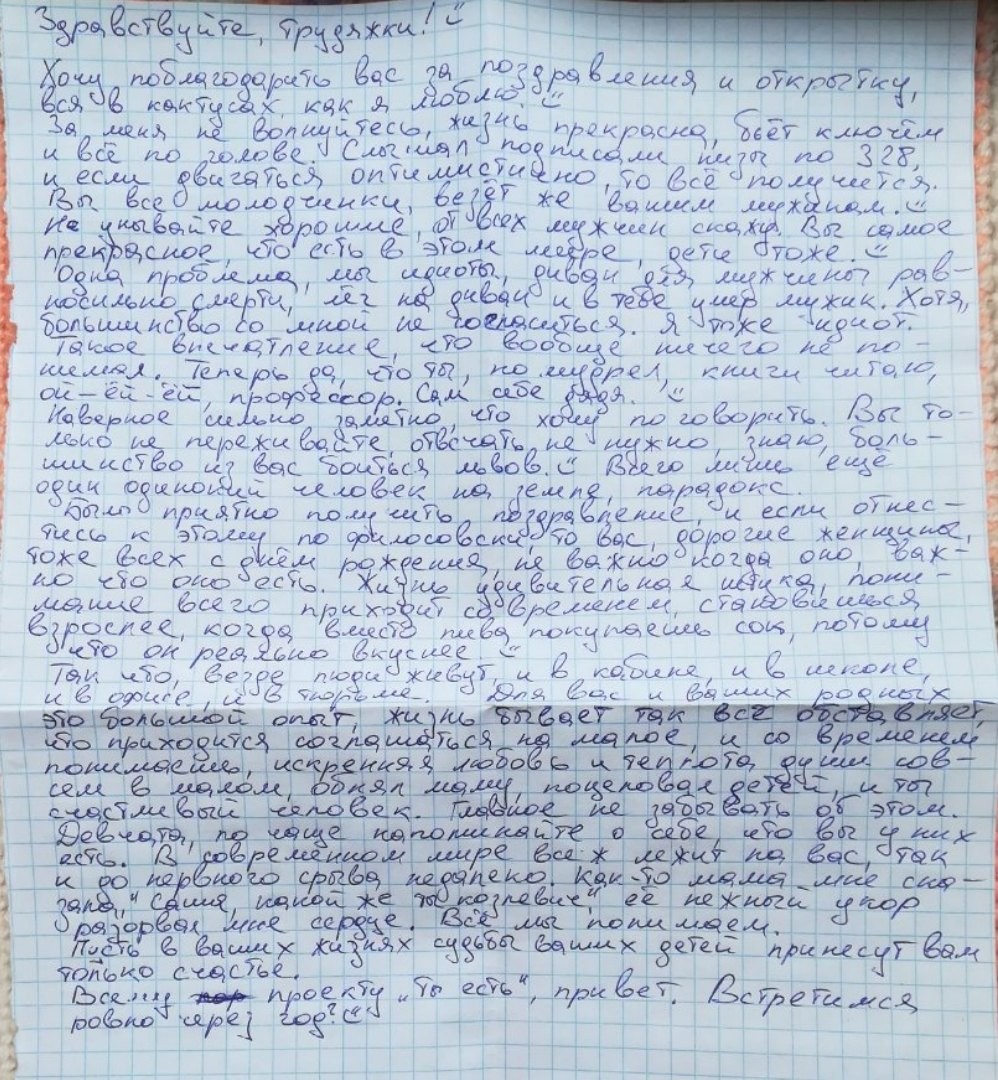 Здравствуйте, трудяжки!
Хочу поблагодарить вас за поздравления и открытку,
вся в кактусах, как я люблю.
За меня не волнуйтесь, жизнь прекрасна, бьёт ключём
и всё по голове. Слышал подписали низы по 328,
и если двигаться оптимистично, то всё получится.
Вы все молодчинки, везёт же вашим мужчинам.
Не унывайте хорошие, от всех мужчин скажу. Вы самое
прекрасное, что есть в этом мире, дети тоже.
Одна проблема, мы идиоты, диван для мужчины рав-
носильно смерти, лёг на диван и в тебе умер мужик. Хотя,
большинство со мной не согласиться. Я тоже идиот.
Такое впечатление, что вообще ничего не по-
нимал. Теперь да, что ты, по мудрел, книги читаю,
ой-ёй-ёй, профессор. Сам себе дядя.
Наверное сильно заметно, что хочу по говорить. Вы то-
лько не переживайте, отвечать не нужно, знаю, боль-
шинство из вас бояться львов. Всего лишь ещё
один одинокий человек на земле, парадокс.
Было приятно получить поздравление, и если отнес-
тись к этому по философски, то вас, дорогие женщины,
тоже всех с днём рождения, не важно когда оно, важ-
но что оно есть. Жизнь удивительная штука, пони-
мание всего приходит со временем, становишься
взрослее, когда вместо пива покупаешь сок, потому
что он реально вкуснее.
Так что, везде люди живут, и в кабине, и в школе,
и в офисе, и в тюрьме. Для вас и ваших родных
это большой опыт, жизнь бывает так всё обставляет,
что приходится соглашаться на малое, и со временем
понимаешь, искренняя любовь и теплота души сов-
сем в малом, обнял маму, поцеловал детей, и ты
счастливый человек. Главное не забывать об этом.
Девчата, по чаще напоминайте о себе, что вы у них
есть. В современном мире все ж лежит на вас, так
и до нервного срыва недалеко. Как-то мама мне ска-
зала, "Саша, какой же ты козлевич", её нежный укор
разорвал мне сердце. Всё мы понимаем.
Пусть в ваших жизнях судьбы ваших детей принесут вам
только счастье.
Всему проекту "Ты есть", привет. Встретимся
ровно через год?